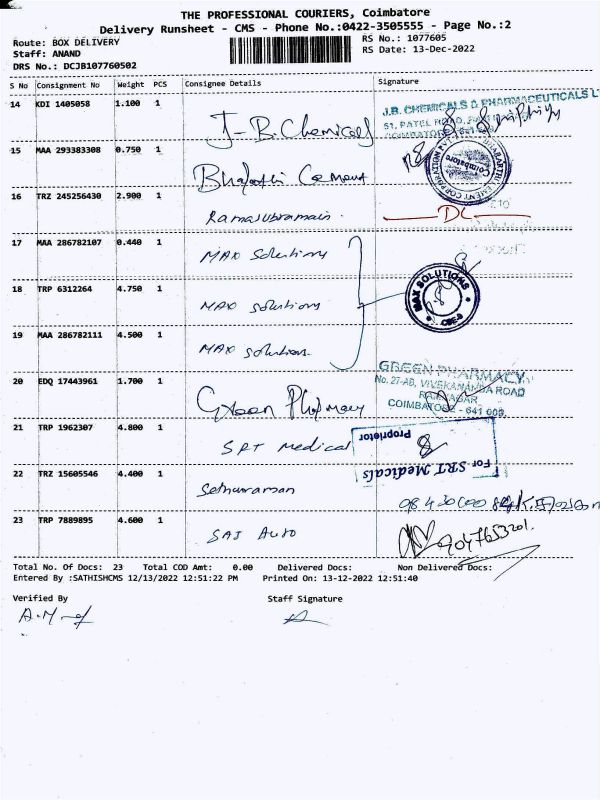 THE PROFESSIONAL COURIERS, Coimbatore
Delivery Runsheet - CMS - Phone No.:0422-3505555 - Page No.:2
Route: BOX DELIVERY
RS No.: 1077605
Staff: ANAND
RS Date: 13-Dec-2022
DRS No.: DCJB107760502
S No Consignment No Weight PCS Consignee Details Signature
14 KDI 1405058 1.100 1 J-B.Chemicals
J.B. CHEMICALS & PHARMACEUTICALS LT
51, PATEL ROAD,
COIMBATORE - 641
15 MAA 293383308 0.750 1 Bharathi Cement
Coimbatore
16 TRZ 245256430 2.900 1 Ramasubramain. DL
17 MAA 286782107 0.440 1 MAX Solutions
18 TRP 6312264 4.750 1 MAX solutions
MAX SOLUTIONS
CBE-9
19 MAA 286782111 4.500 1 MAX solutions.
20 EDQ 17443961 1.700 1 Green Pharmacy
GREEN PHARMACY
No. 27-AB, VIVEKANANDA ROAD
RAM NAGAR,
COIMBATORE - 641 009.
21 TRP 1962307 4.800 1 SRT Medical
For SRT Medicals
Proprietor
22 TRZ 15605546 4.400 1 Sethuraman
23 TRP 7889895 4.600 1 SAI Auto
9047653201.
Total No. Of Docs: 23 Total COD Amt: 0.00 Delivered Docs: Non Delivered Docs:
Entered By :SATHISHCMS 12/13/2022 12:51:22 PM Printed On: 13-12-2022 12:51:40
Verified By Staff Signature